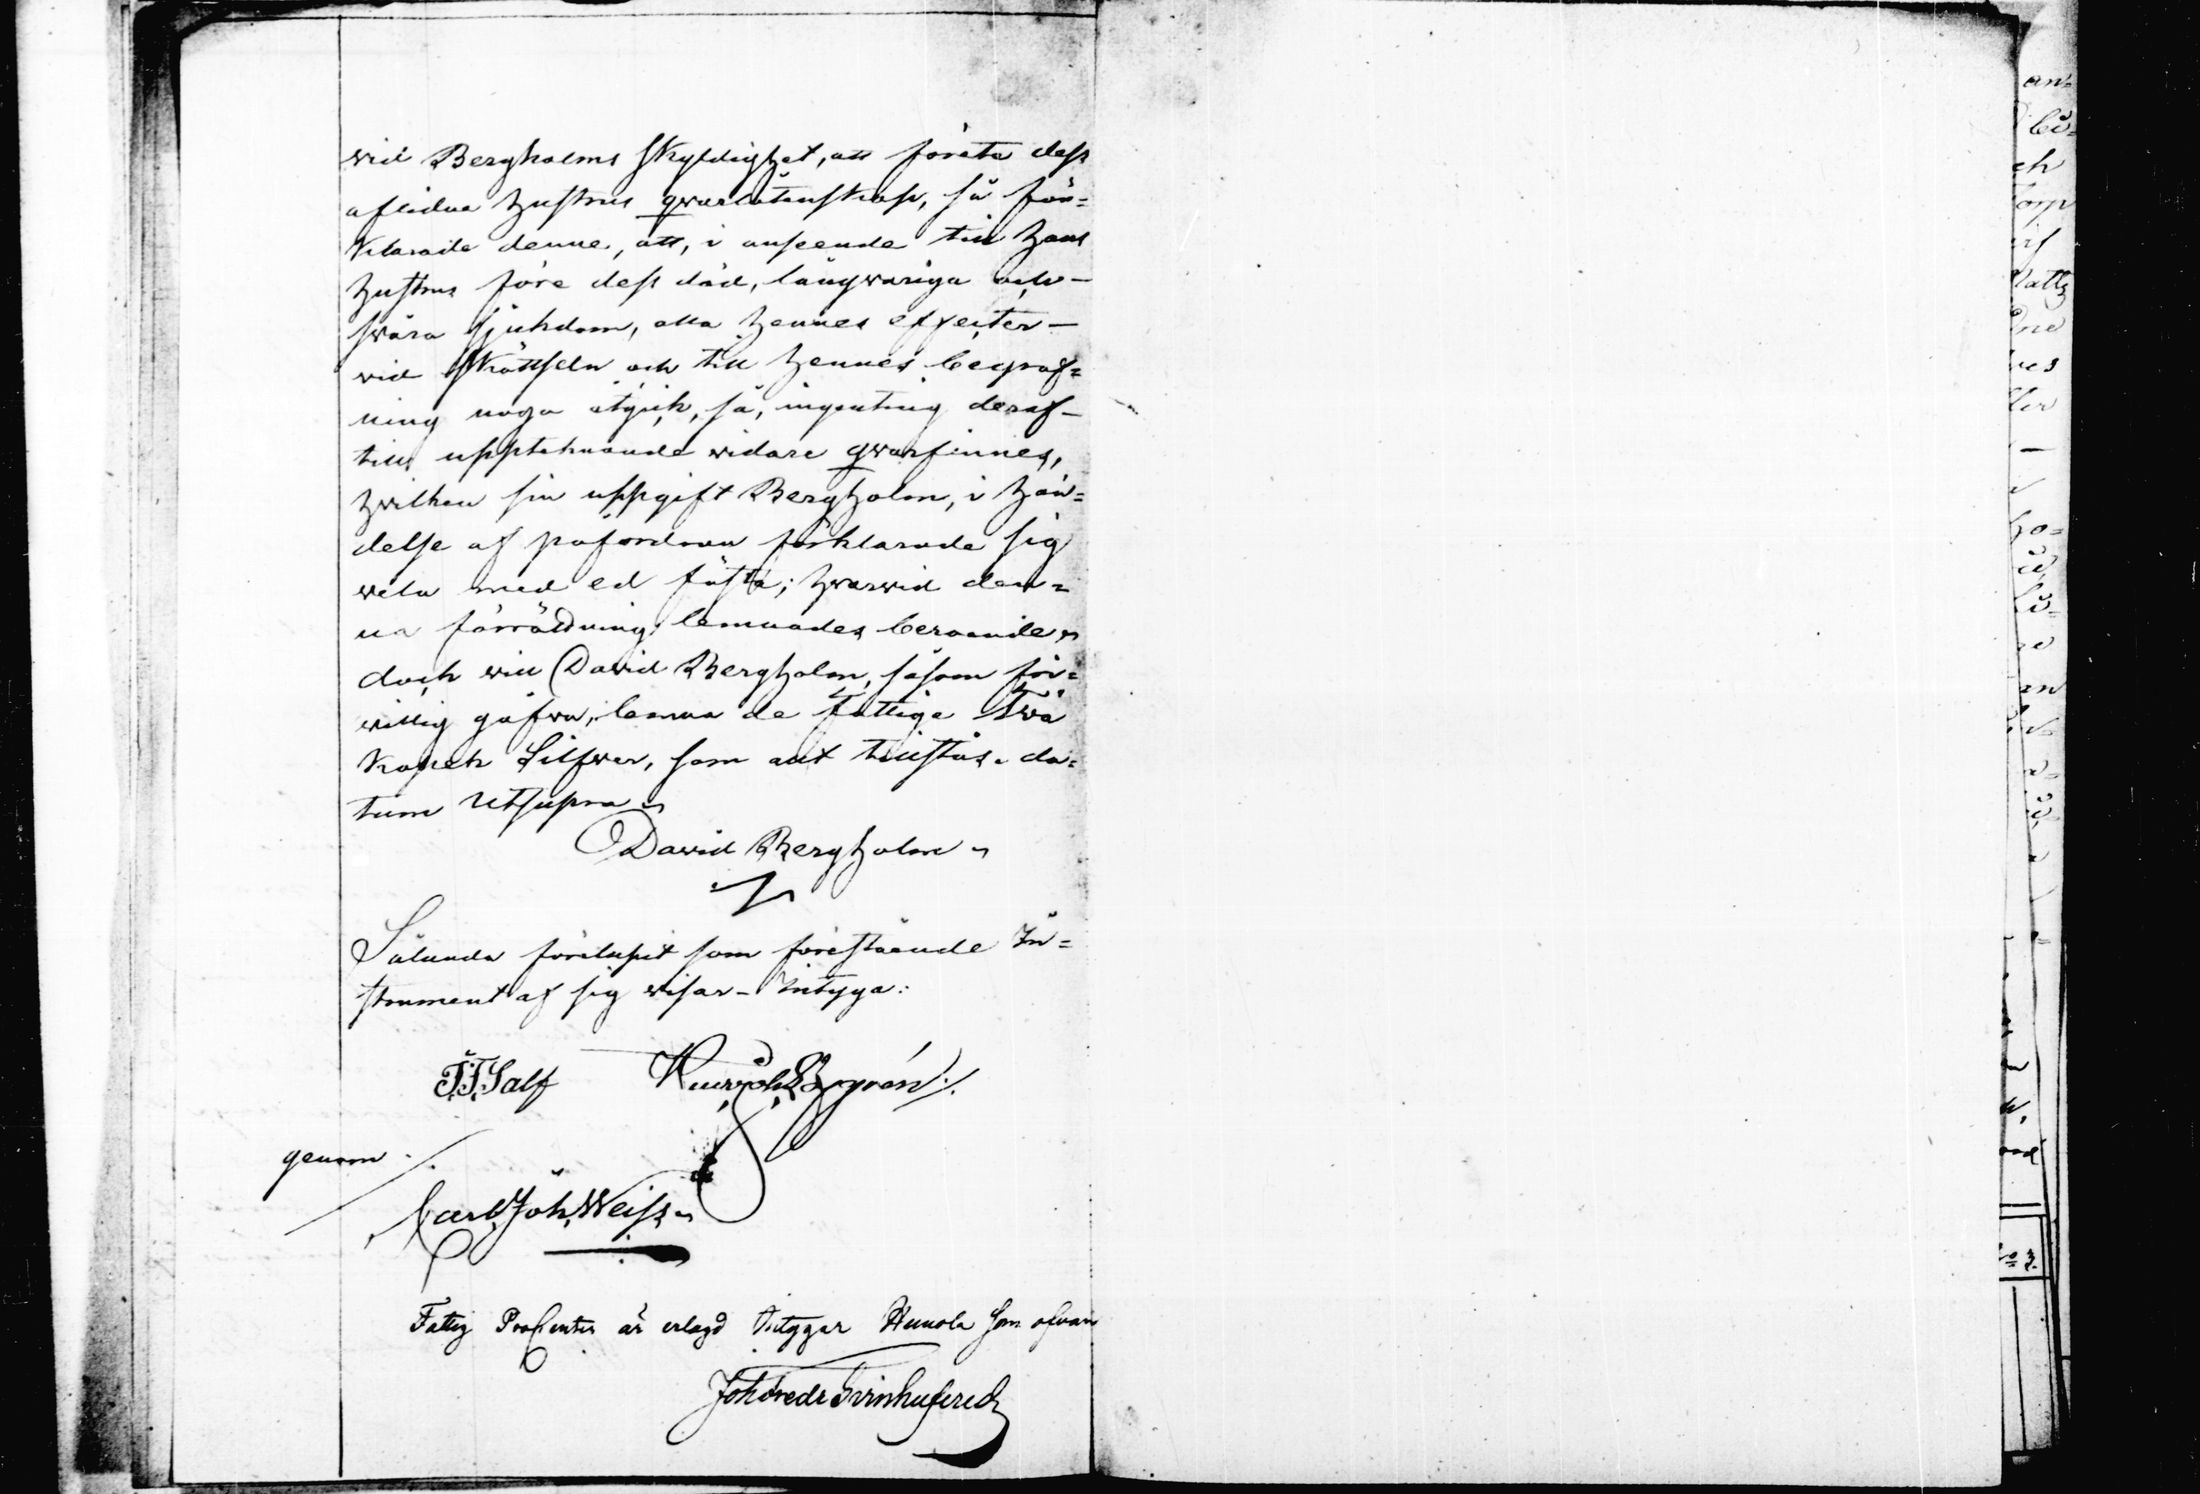 wid Bergholms skyldighet, att förete dess
aflidna hustrus qwarlåtenskap, så för=
klarade denne, att, i anseende till hans
hustrus före dess död, långwariga och
swåra sjukdom, alla hennes effecter
wid sköttseln och till hennes begraf=
ning noga åtgick, så, ingenting deraf
till upptecknande widare qwarfinnes,
hwilken sin uppgift Bergholm, i hän=
delse af påfordran förklarade sig
wela med ed fästa; hwarwid den=
na förrättning lemnades beroende,
dock will David Bergholm, såsom fri=
willig gåfwa, lemna de fattige Twå
kopek Silfwer, som ant tillstås. da=
tum Utsupra
David Bergholm
Sålunda förelupit som förestående In=
strument af sig wisar - Intyga:
genom
Carl Joh. Weiss
Fattig ProCenter är erlagd Intygar Heinola som ofvan